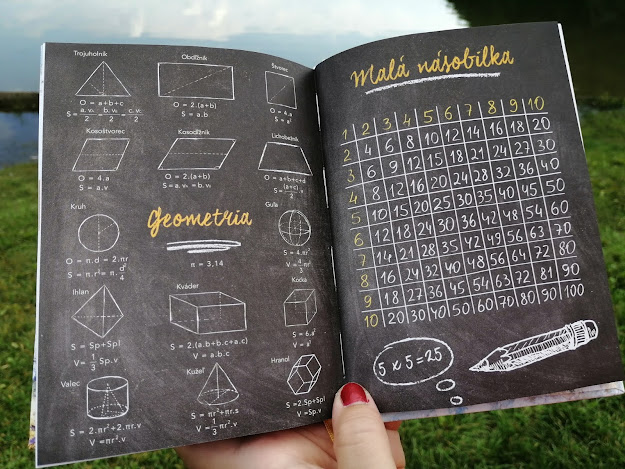 Trojuholník
O = a+b+c
S = a.vₐ/2 = b.v_b/2 = c.v_c/2
Obdĺžnik
O = 2.(a+b)
S = a.b
Štvorec
O = 4.a
S = a²
Kosoštvorec
O = 4.a
S = a.v
Kosodĺžnik
O = 2.(a+b)
S = a.vₐ = b.v_b
Lichobežník
O = a+b+c+d
S = (a+c)/2 .v
Kruh
O = π.d = 2.πr
S = π.r² = π.d²/4
Geometria
π = 3,14
Guľa
S = 4.πr²
V = 4/3 πr³
Ihlan
S = Sp+Spl
V = 1/3 Sp.v
Kváder
S = 2.(a.b+b.c+a.c)
V = a.b.c
Kocka
S = 6.a²
V = a³
Valec
S = 2.πr²+2πr.v
V = πr².v
Kužeľ
S = πr²+πr.s
V = 1/3 πr².v
Hranol
S = 2.Sp+Spl
V = Sp.v
Malá násobilka
1 2 3 4 5 6 7 8 9 10
2 4 6 8 10 12 14 16 18 20
3 6 9 12 15 18 21 24 27 30
4 8 12 16 20 24 28 32 36 40
5 10 15 20 25 30 35 40 45 50
6 12 18 24 30 36 42 48 54 60
7 14 21 28 35 42 49 56 63 70
8 16 24 32 40 48 56 64 72 80
9 18 27 36 45 54 63 72 81 90
10 20 30 40 50 60 70 80 90 100
5 x 5 = 25